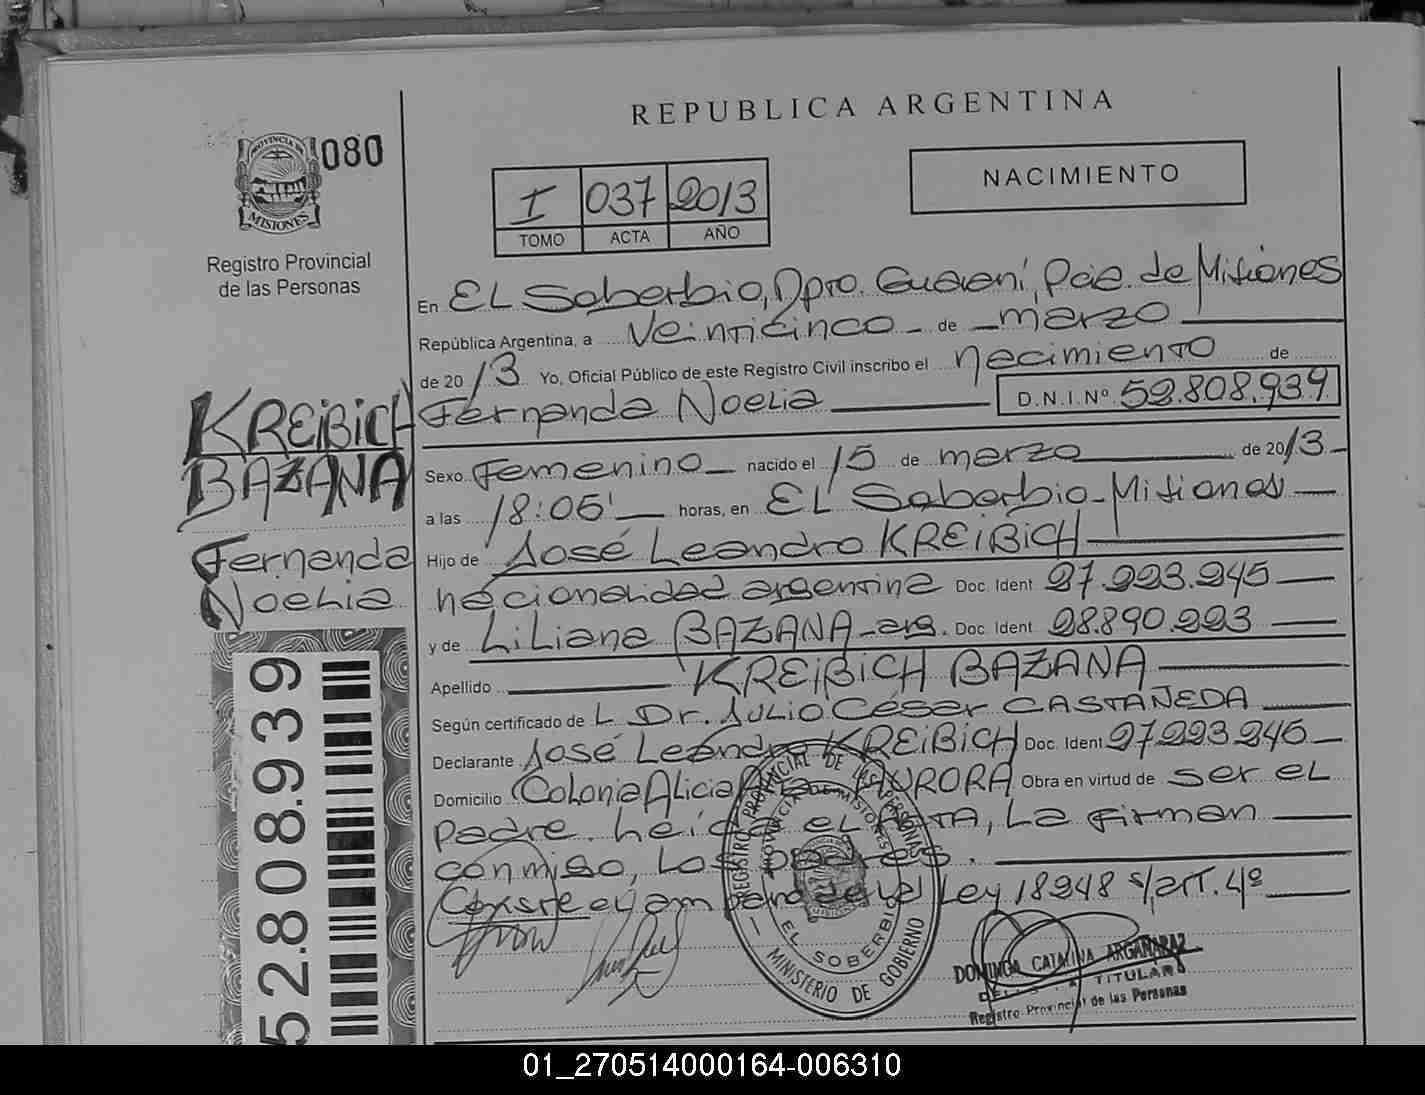 REPUBLICA ARGENTINA
PROVINCIA DE
MISIONES
080
Registro Provincial
de las Personas
I 037 2013
TOMO ACTA AÑO
NACIMIENTO
En EL Soberbio, Dpto. Guaraní, Pcia. de Misiones
República Argentina, a Veinticinco de marzo
de 2013 Yo, Oficial Público de este Registro Civil inscribo el nacimiento de
Fernanda Noelia D.N.I.Nº 52.808.939
KREIBICH
BAZANA
Fernanda
Noelia
52.808.939
Sexo Femenino nacido el 15 de marzo de 2013
a las 18:05' horas, en EL Soberbio-Misiones
Hijo de José Leandro KREIBICH
nacionalidad argentina Doc. Ident 27.223.245
y de Liliana BAZANA-arg. Doc. Ident 28.890.223
Apellido KREIBICH BAZANA
Según certificado de L Dr. JULIO César CASTAÑEDA
Declarante José Leandro KREIBICH Doc. Ident 27.223.245
Domicilio Colonia Alicia AURORA Obra en virtud de ser el
padre. Leída el ACTA, La firman
conmigo, Los padres.
Conste el amparo de la Ley 18248 s/art. 4º
REGISTRO PROVINCIAL DE LAS PERSONAS
PROVINCIA DE MISIONES
EL SOBERBIO
MINISTERIO DE GOBIERNO
DOMINGA CATALINA ARGAÑARAZ
TITULAR
Registro Provincial de las Personas
01_270514000164-006310